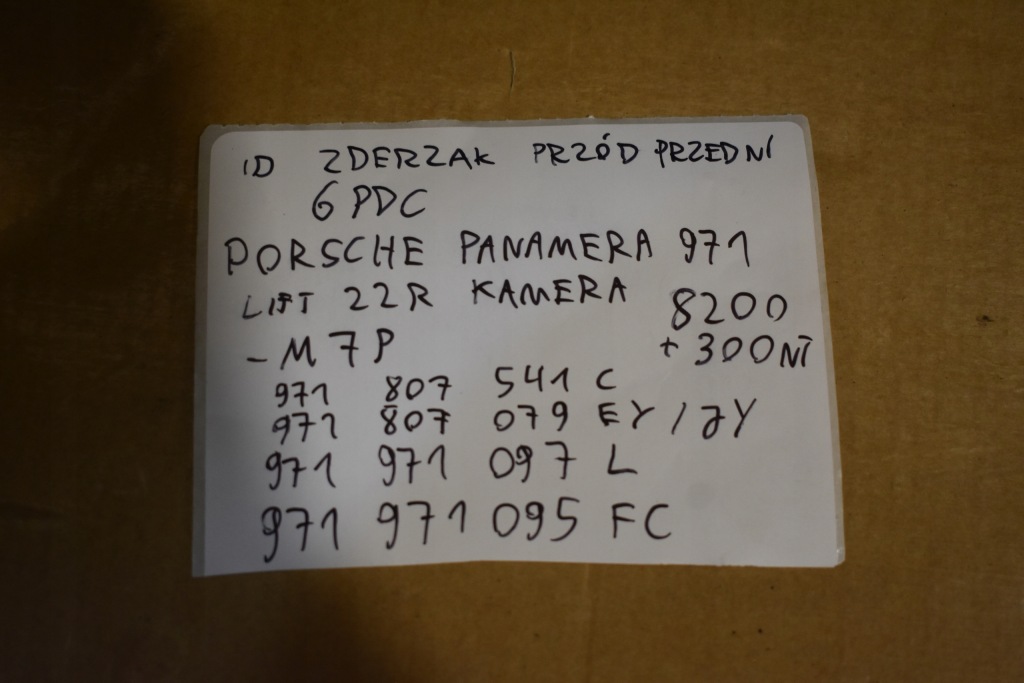 ID ZDERZAK PRZÓD PRZEDNI
6 PDC
PORSCHE PANAMERA 971
LIFT 22R KAMERA 8200
- M7P + 300NT
971 807 541 C
971 807 079 EY / JY
971 971 097 L
971 971 095 FC